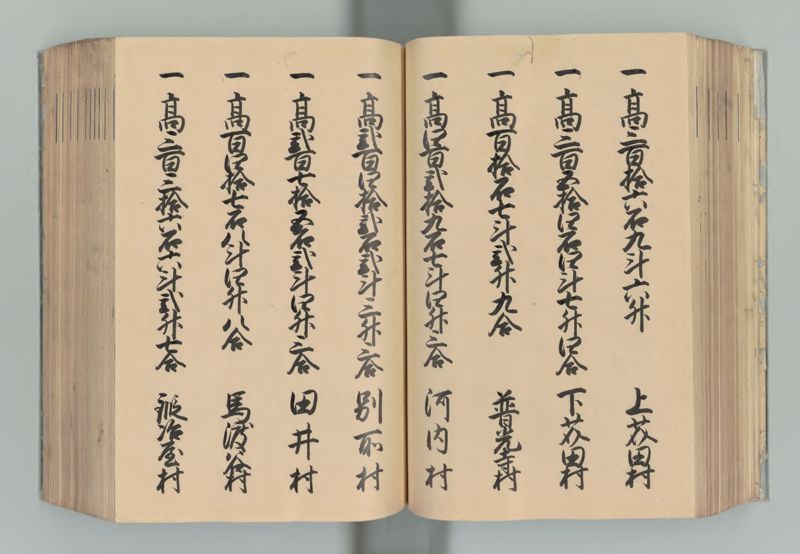 一 高三百拾六石九斗六升 上荻田村
一 高三百五拾四石四斗七升四合 下荻田村
一 高百拾石七斗弐升九合 普光寺村
一 高四百弐拾九石七斗四升三合 河内村
一 高弐百四拾弐石弐斗三升六合 別所村
一 高弐百七拾五石弐斗四升三合 田井村
一 高百四拾七石八斗四升八合 馬渡谷村
一 高三百三拾六石六斗弐升七合 鍛冶屋村